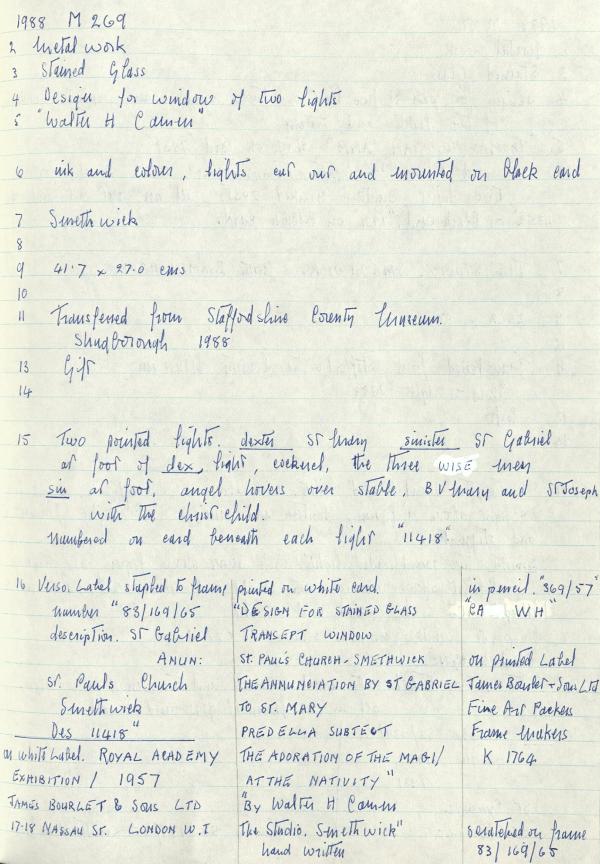 1988 M 269
2 Metal work
3 Stained Glass
4 Design for window of two lights
5 "Walter H Camm"
6 ink and colour, lights cut out and mounted on black card
7 Smethwick
8
9 41.7 x 27.0 cms
10
11 Transferred from Staffordshire County Museum.
Shugborough 1988
13 Gift
14
15 Two pointed lights. dexter St Mary sinister St Gabriel
at foot of dex, light, cockerel, the three WISE men
sin at foot, angel hovers over stable, B V Mary and St Joseph
with the christ child.
numbered on card beneath each light "11418"
16 Verso. Label stapled to frame
number "83/169/65
description. St Gabriel
ANUN:
St. Pauls Church
Smethwick
Des 11418"
on white Label. ROYAL ACADEMY
EXHIBITION / 1957
JAMES BOURLET & SONS LTD
17-18 NASSAU ST. LONDON W.I
printed on white card.
"DESIGN FOR STAINED GLASS
TRANSEPT WINDOW
ST. PAUL'S CHURCH - SMETHWICK
THE ANNUNCIATION BY ST GABRIEL
TO ST. MARY
PREDELLA SUBJECT
THE ADORATION OF THE MAGI /
AT THE NATIVITY"
"By Walter H Camm
The Studio. Smethwick"
hand written
in pencil. "369/57"
"CA WH"
on printed Label
James Bourlet - Sons Ltd
Fine Art Packers
Frame Makers
K 1764
scratched on frame
83/169/65